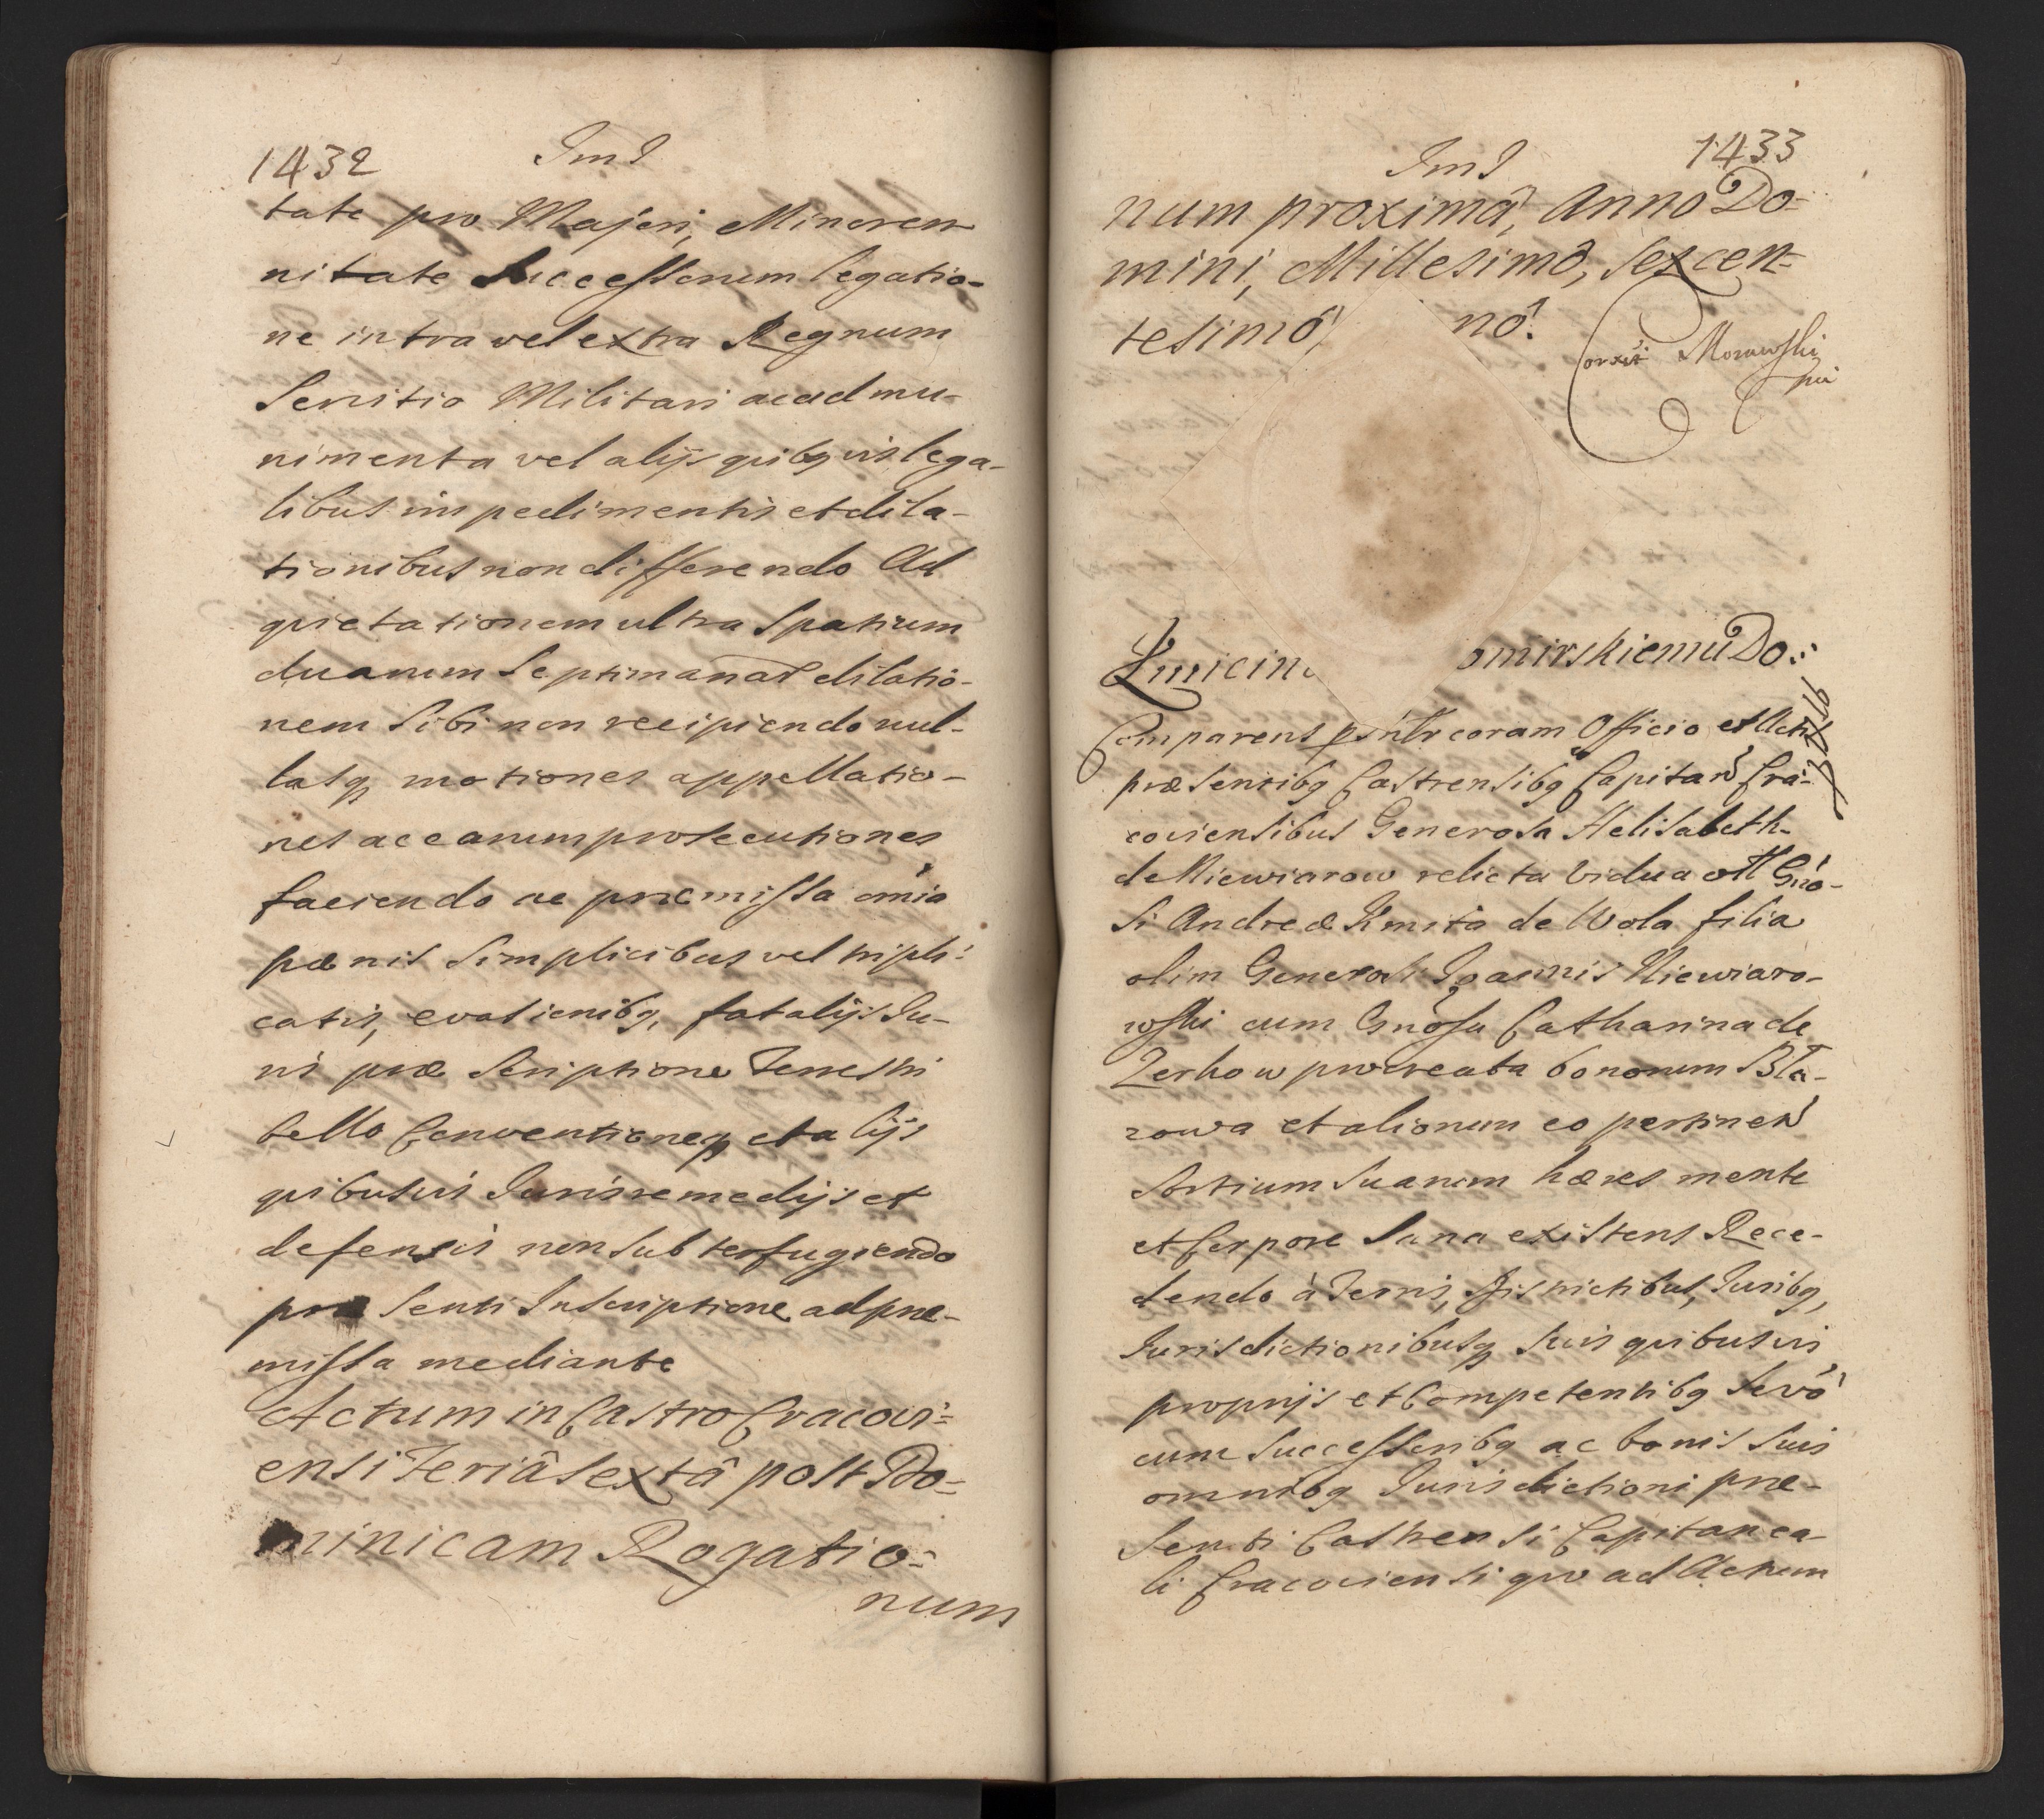 1432
Im I
tate pro Majori, Minoren
nitate Successorum legatio-
ne intra vel extra Regnum
Servitio Militari ac ad mu-
nimenta vel alijs quibq vis lega-
libus impedimentis et dila-
tionibus non differendo Ad
quietationem ultra Spatium
duarum Septimanar dilatio-
nem Sibi non recipiendo nul-
lasq motiones appellatio-
nes ac earum prosecutiones
faciendo ac præmissa omia
pænis Simplicibus vel tripli:
catis, evasionibq, fatalijs Iu-
ris præ Scriptione Terrestri
bello Conventioneq et alijs
quibusvis Iuris remedijs et
defensis non Subterfugiendo
præ Senti Inscriptione ad præ-
missa mediante
Actum in Castro Cracovi=
ensi Feriâ Sextâ post Do=
minicam Rogatio=
num
1433
Im I
num proximâ, Anno Do=
mini, Millesimô, Sexcen=
tesimô, nô.
Corexit Morawski
mp
Kmicin omirskiemu Do:
Comparens psntr coram Officio et Actis
præ Sentibq Castrensibq Capitan Cra-
coviensibus Generosa Helisabeth
de Niewiarow relicta Vidua olì Gno-
si Andreæ Kmita de Wola filia
olim Generosi Joannis Niewiaro-
wski cum Gnosa Catharina de
Zerkow procreata bonorum Bla-
zowa et aliorum eo pertinen
Sortium Suarum hæres mente
et Corpore Sana existens Rece-
dendo à Terris, Districtibus, Iuribq,
Iurisdictionibusq Suis quibusvis
proprijs et Competentibq Sevò
cum Successoribq ac bonis Suis
omnibq Iurisdictioni præ-
Senti Castrensi Capitanea-
li Cracoviensi quo ad Actum